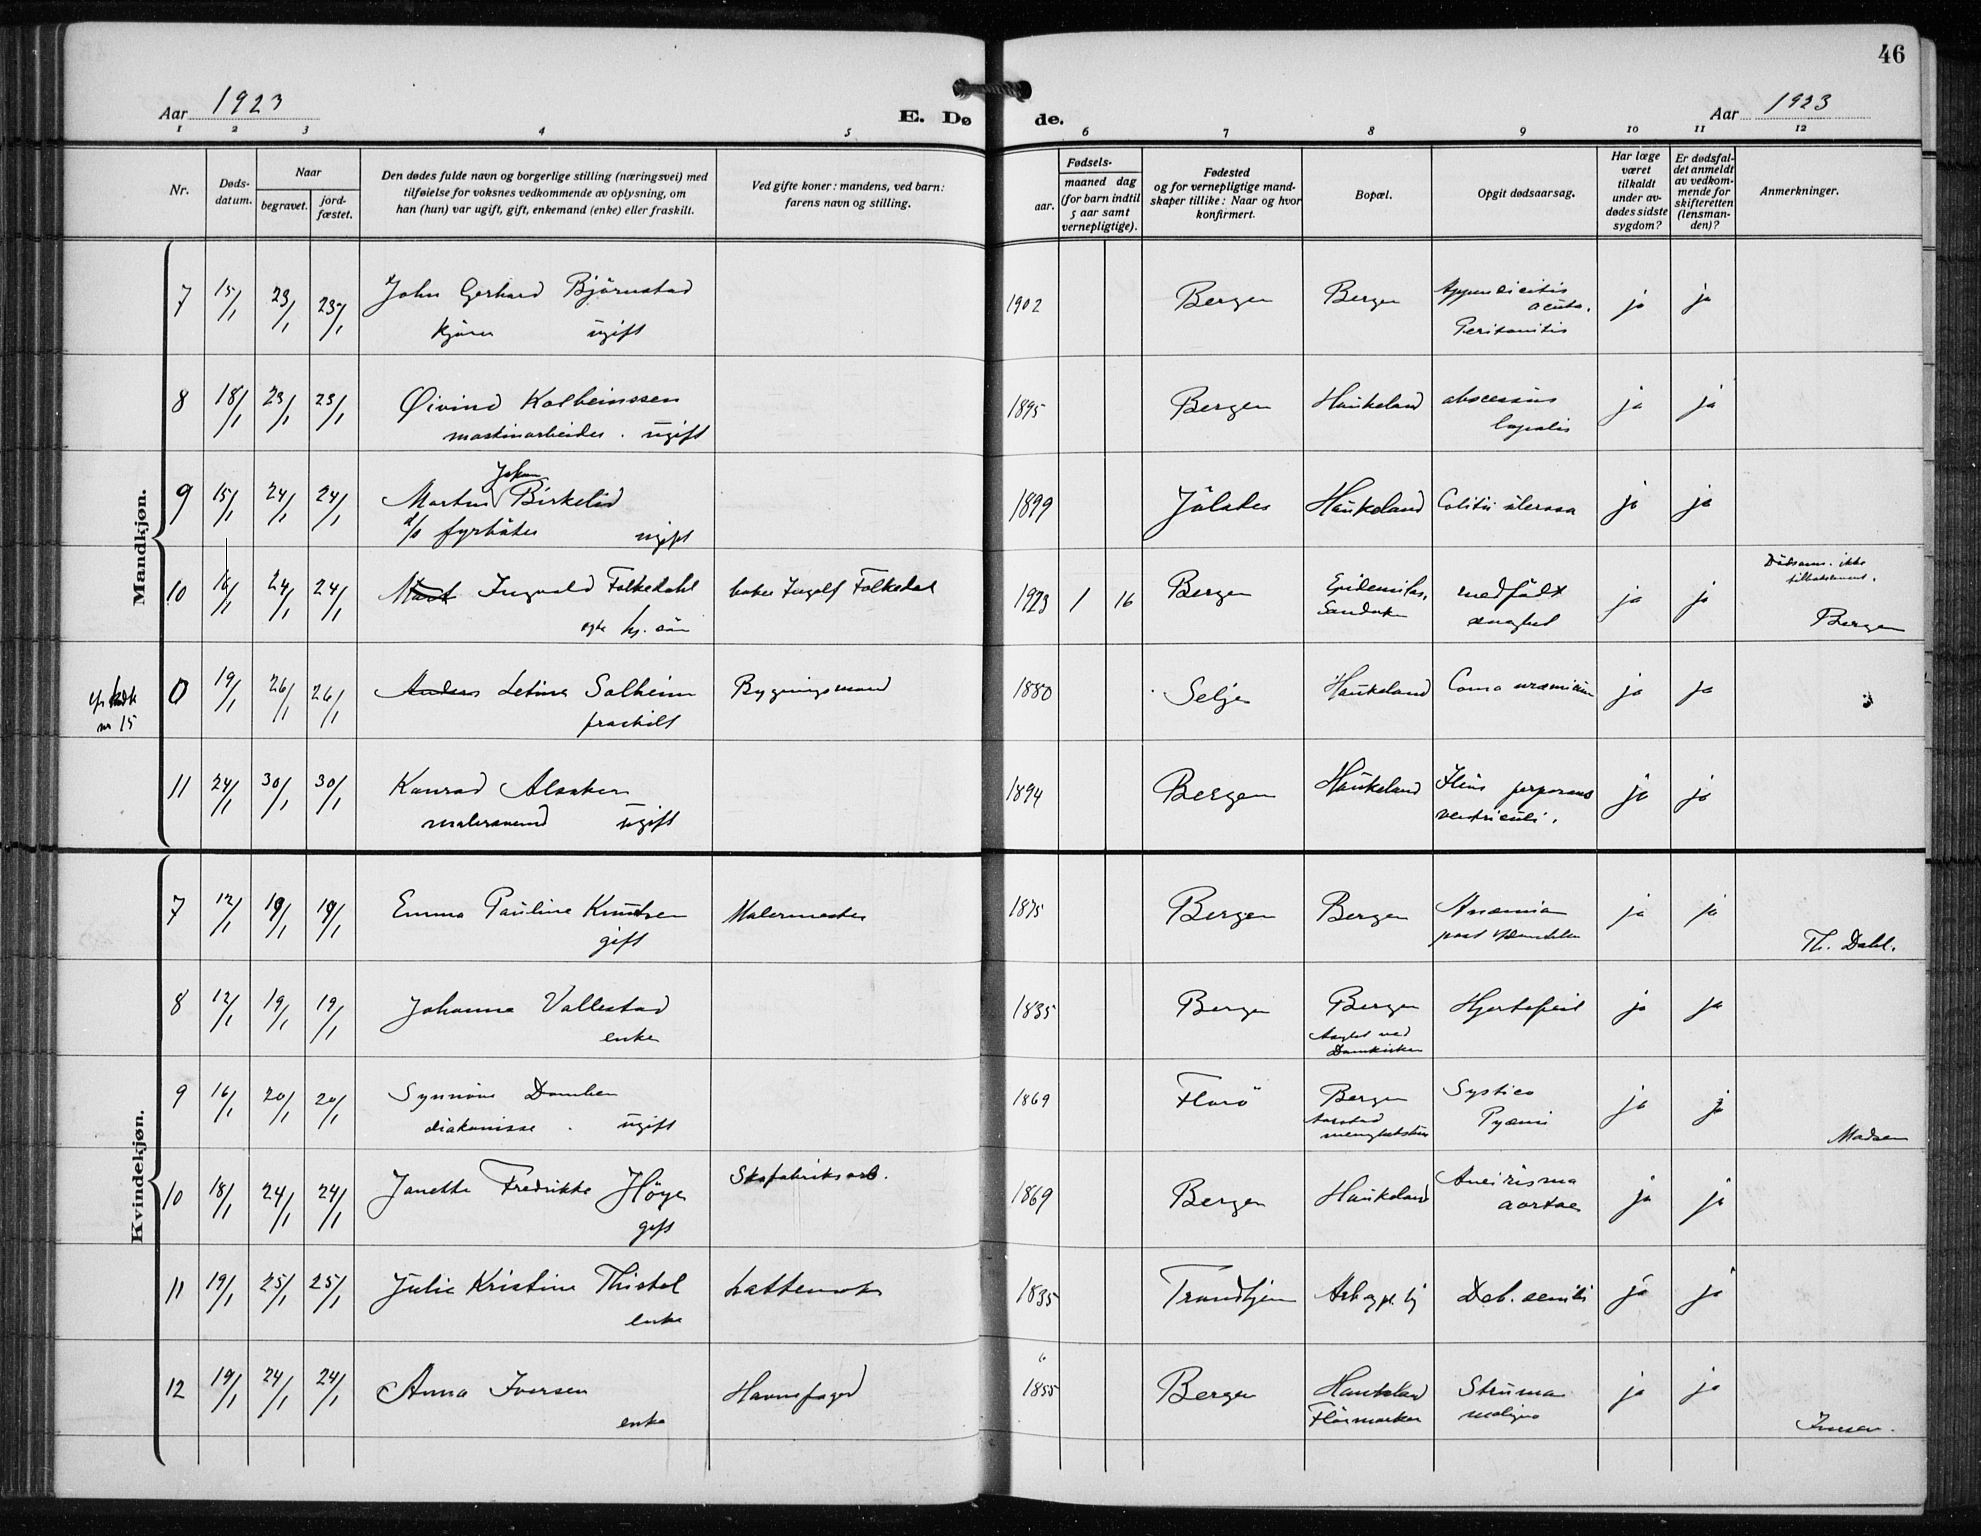 46
Aar 1923
E. Dø de.
Aar 1923
1 2 3 4 5 6 7 8 9 10 11 12
Nr.
Døds-
datum.
Naar
begravet.
jord-
fæstet.
Den dødes fulde navn og borgerlige stilling (næringsvei) med
tilføielse for voksnes vedkommende av oplysning, om
han (hun) var ugift, gift, enkemand (enke) eller fraskilt.
Ved gifte koner: mandens, ved barn:
farens navn og stilling.
Fødsels-
aar.
maaned dag
(for barn indtil
5 aar samt
vernepligtige).
Fødested
og for vernepligtige mand-
skaper tillike: Naar og hvor
konfirmert.
Bopæl.
Opgit dødsaarsag.
Har læge
været
tilkaldt
under av-
dødes sidste
sygdom?
Er dødsfal-
det anmeldt
av vedkom-
mende for
skifteretten
(lensman-
den)?
Anmerkninger.
Mandkjøn.
7 15/1 23/1 23/1 John Gerhard Björnstad 1902 Bergen Bergen Appendicitis ja ja
acuta.
kjører ugift Peritonitis
8 18/1 23/1 23/1 Øivind Kolbeinssen 1895 Bergen Haukeland abscessus ja ja
maskinarbeider. ugift
Johan
9 15/1 24/1 24/1 Martin Birkelid 1899 Jölster Haukeland Colitis ulerosa ja ja
d/s fyrböter ugift
10 16/1 24/1 24/1 Ingvald Folkedahl Ingolf Folkedal 1923 1 16 Bergen medfødt ja ja
Sandviken svaghet
egte hj. sön Bergen
0 19/1 26/1 26/1 Anders Letina Solheim Bygningsmand 1880 Selje Haukeland Coma uræmicum ja ja
nr 15
fraskilt
11 24/1 30/1 30/1 Konrad Alsaker 1894 Bergen Haukeland Ulcus perforans ja ja
malersvend ugift ventriculi.
Kvindekjøn.
7 12/1 19/1 19/1 Emma Pauline Knutsen Malermester 1875 Bergen Bergen Anæmia ja ja
gift post
Th. Dahl.
8 12/1 19/1 19/1 Johanna Vallestad 1835 Bergen Bergen Hjertefeil ja ja
enke Asylet ved
Domkirken
9 16/1 20/1 20/1 Synnöve Domben 1869 Florö Bergen Systico ja ja
diakonisse. ugift Aarstad Pyæmi
menighetshus
Madsen
10 18/1 24/1 24/1 Janette Fredrikke Høyer Skofabriksarb. 1869 Bergen Haukeland Aneurisma ja ja
gift aortae
11 19/1 25/1 25/1 Julie Kristine Thistel 1835 Trondhjem Deb. senilis ja ja
enke
12 19/1 24/1 24/1 Anna Iversen Havnefoged 1855 Bergen Haukeland Struma ja ja
enke maligna
Iversen.